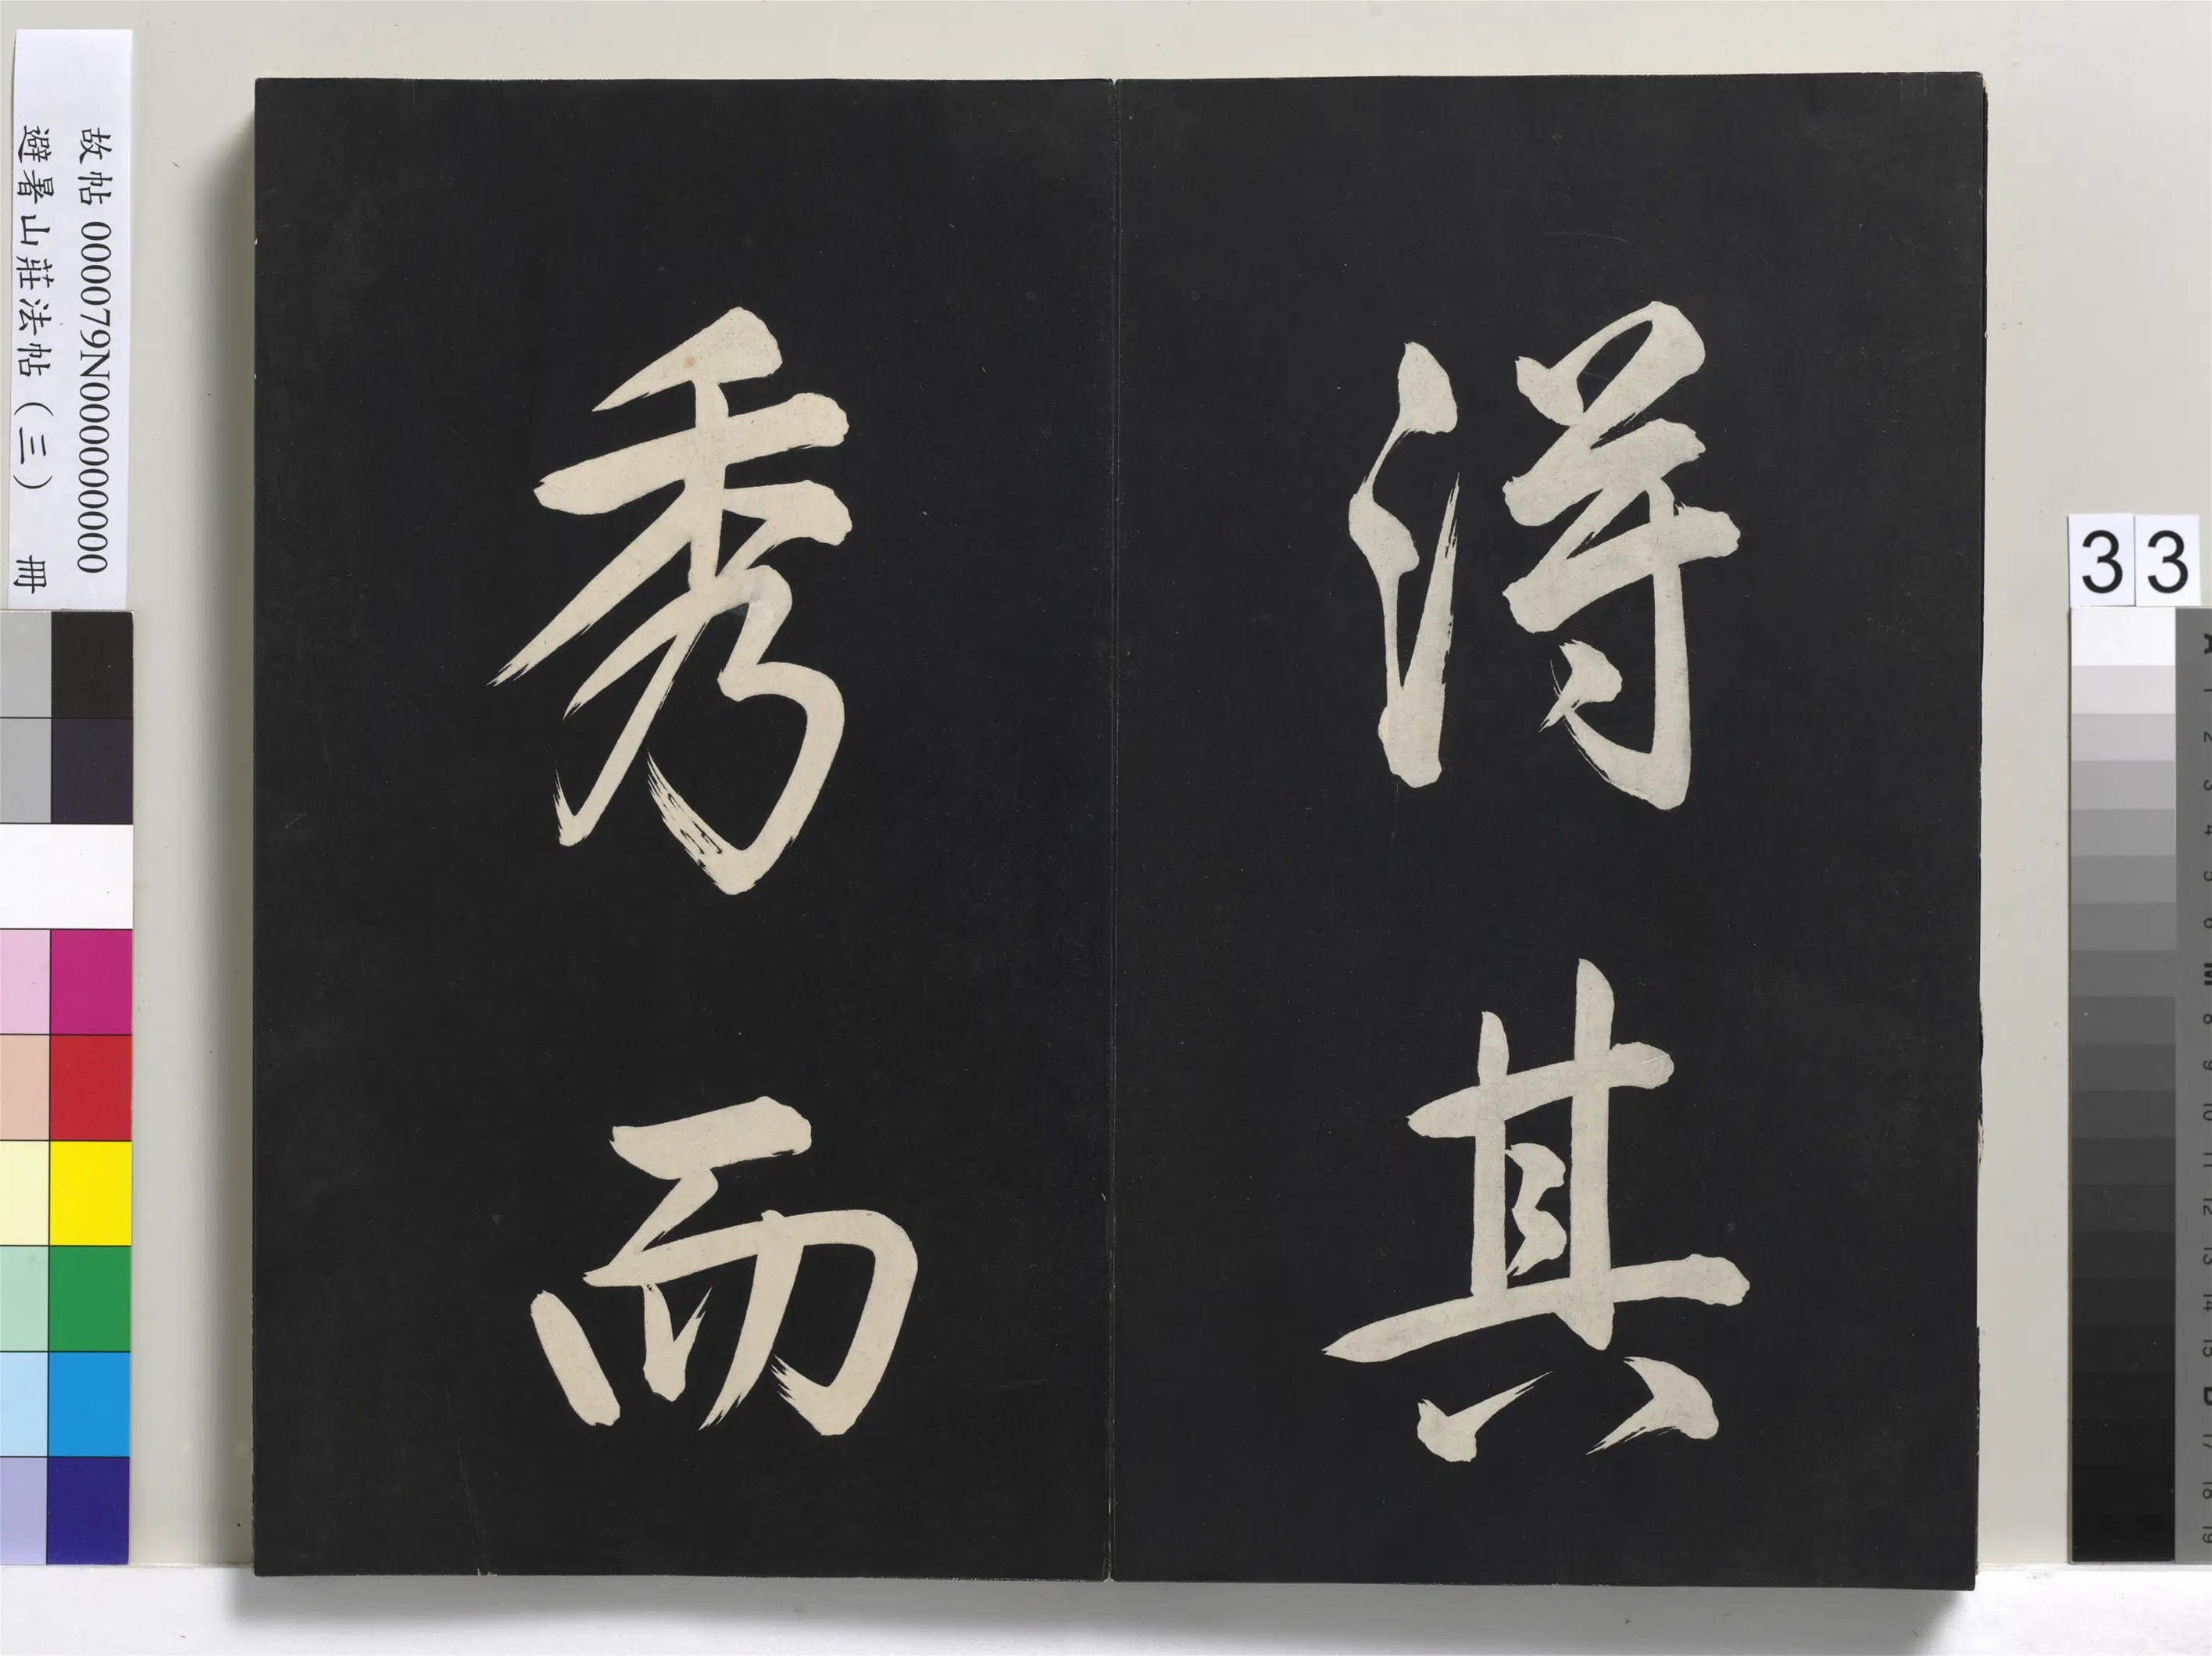 得其
秀而
故帖 000079N000000000
避暑山莊法帖(三) 冊
33
A
1
2
3
4
5
6
M
8
9
10
11
12
13
14
15
B
17
18
19